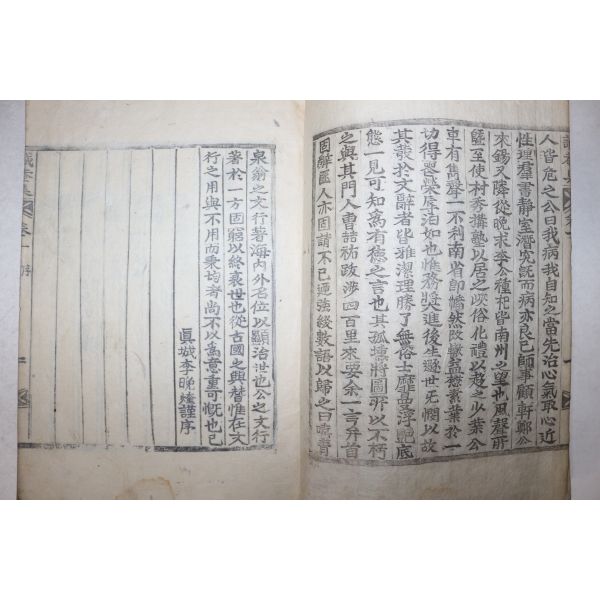 人皆危之公曰我病我自知之當先治心氣取心近
性理羣書靜室潛究旣而病亦良已師事顧軒鄭公
來錫又陪從晩求李公種杞皆南州之望也風聲所
曁至使村秀搆塾以居之峽俗化禮以趍之少業公
車有雋聲一不利南省卽幡然改轍盖
切得喪榮厚泊如也惟務奬進後生遯世无憫以故
其發於文辭者皆雅潔理勝了無俗士靡曼浮艶底
態一見可知爲有德之言也其孤壎將圖所以不朽
之與其門人曹喆祐跋涉四百里來要余一言弁首
固辭匪人亦固請不已遂強綴數語以歸之曰噫昔
泉翁之文行著海內外名位以顯治世也公之文行
著於一方固窮以終衰世也從古國之興替惟在文
行之用與不用而秉均者尚不以爲意重可慨也已
眞城李晞燧謹序